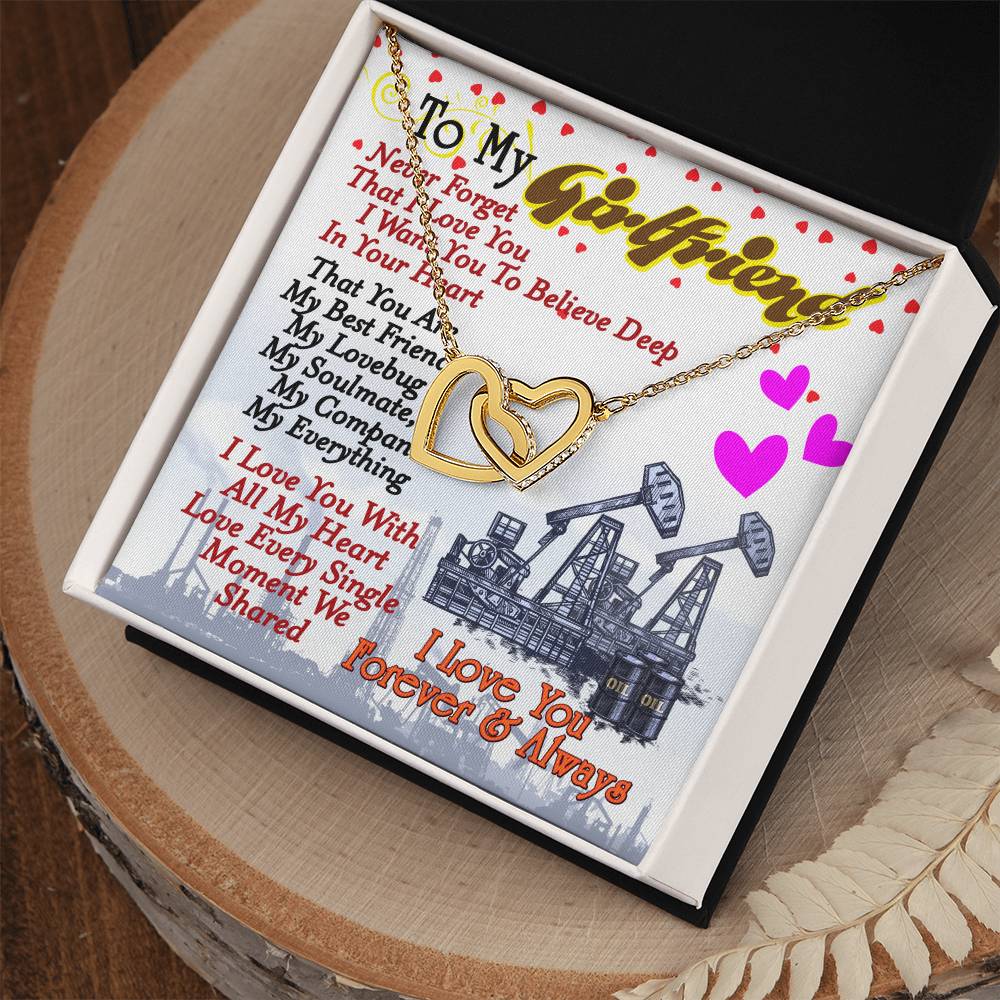 To My
Girlfriend
Never Forget
That I Love You
I Want You To Believe Deep
In Your Heart
That You Are
My Best Friend
My Lovebug
My Soulmate,
My Compan
My Everything
I Love You With
All My Heart
Love Every Single
Moment We
Shared
OIL OIL
I Love You
Forever & Always